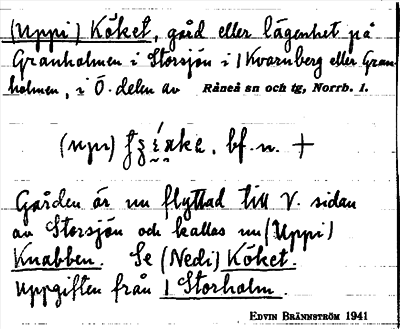 (Uppi) Köket, gård eller lägenhet på
Granholmen i Storsjön i 1 Kvarnberg eller Gran-
holmen, i Ö. delen av Råneå sn och tg, Norrb. l.
bf. n. +
Gården är nu flyttad till V. sidan
av Storsjön och kallas nu (Uppi)
Knabben. Se (Nedi) Köket.
Uppgiften från 1 Storholm.
EDVIN BRÄNNSTRÖM 1941